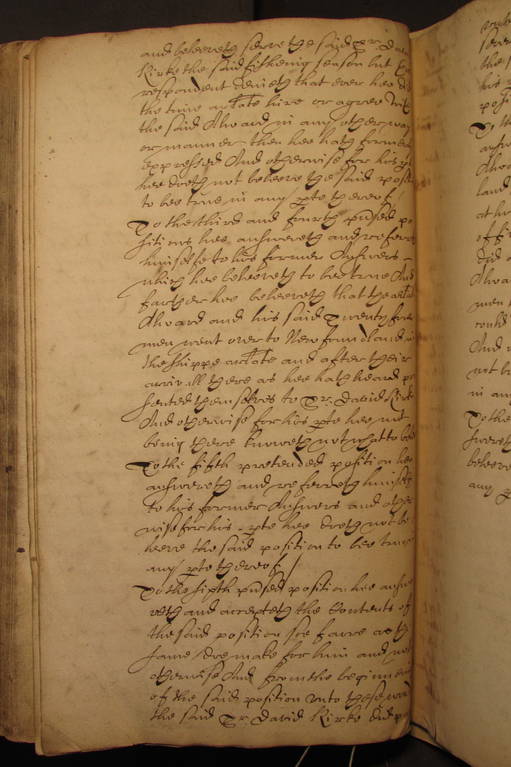 and beleeveth serve the said Sr. Da
Kirke the said fishing season but
respondent denieth that ever hee di
the time arlate hire or agree with
the said Alward in any other way
or manner then hee hath former
expressed And otherwise for his pte
hee doeth not beleeve the said positi
to bee true in any pte thereof
To the third and fourth ptnsed po
sitions hee answereth and referre
himselfe to his former Answers
which hee beleeveth to bee true And
farther hee beleeveth that the arlate
Alward and his said Twenty five
men went over to Newfoundland in
the shippe arlate and after their
arivall there as hee hath heard pre
sented themselves to Sr. David Kirke
And otherwise for his pte hee not
being there knoweth not what to bel
To the fifth pretended position hee
answereth and referreth himselfe
to his former Answers and other
wise for his pte hee doeth not be
leeve the said position to bee true
any pte thereof
To the sixth ptnsed position hee answe
reth and accepteth the Contents of
the said position soe farre as th
same doe make for him and not
otherwise And from the beginnin
of the said position unto these word
the said Sr. David Kirke did p